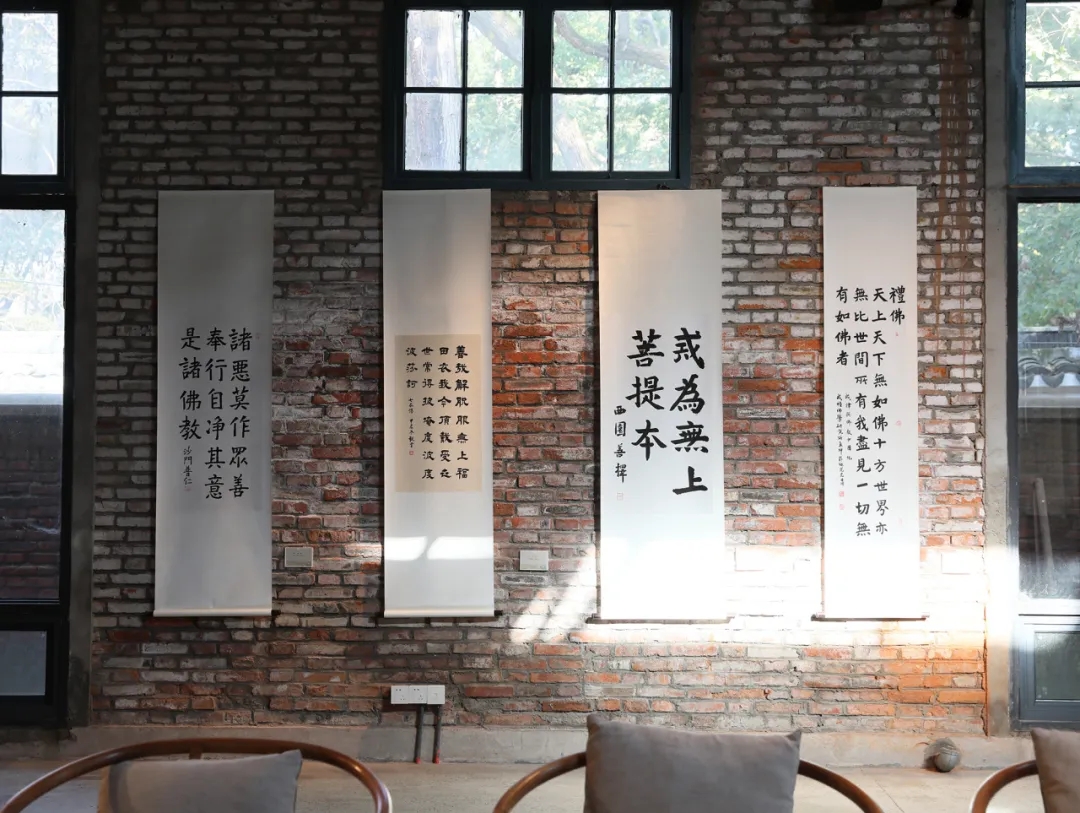 禮佛
天上天下無如佛十方世界亦
無比世間所有我盡見一切無
有如佛者
戒為無上
菩提本
西園
善哉解脫服無上福
田衣我今頂戴受世
世常得披唵度波度
波莎訶
諸悪莫作眾善
奉行自净其意
是諸佛教
沙門普仁